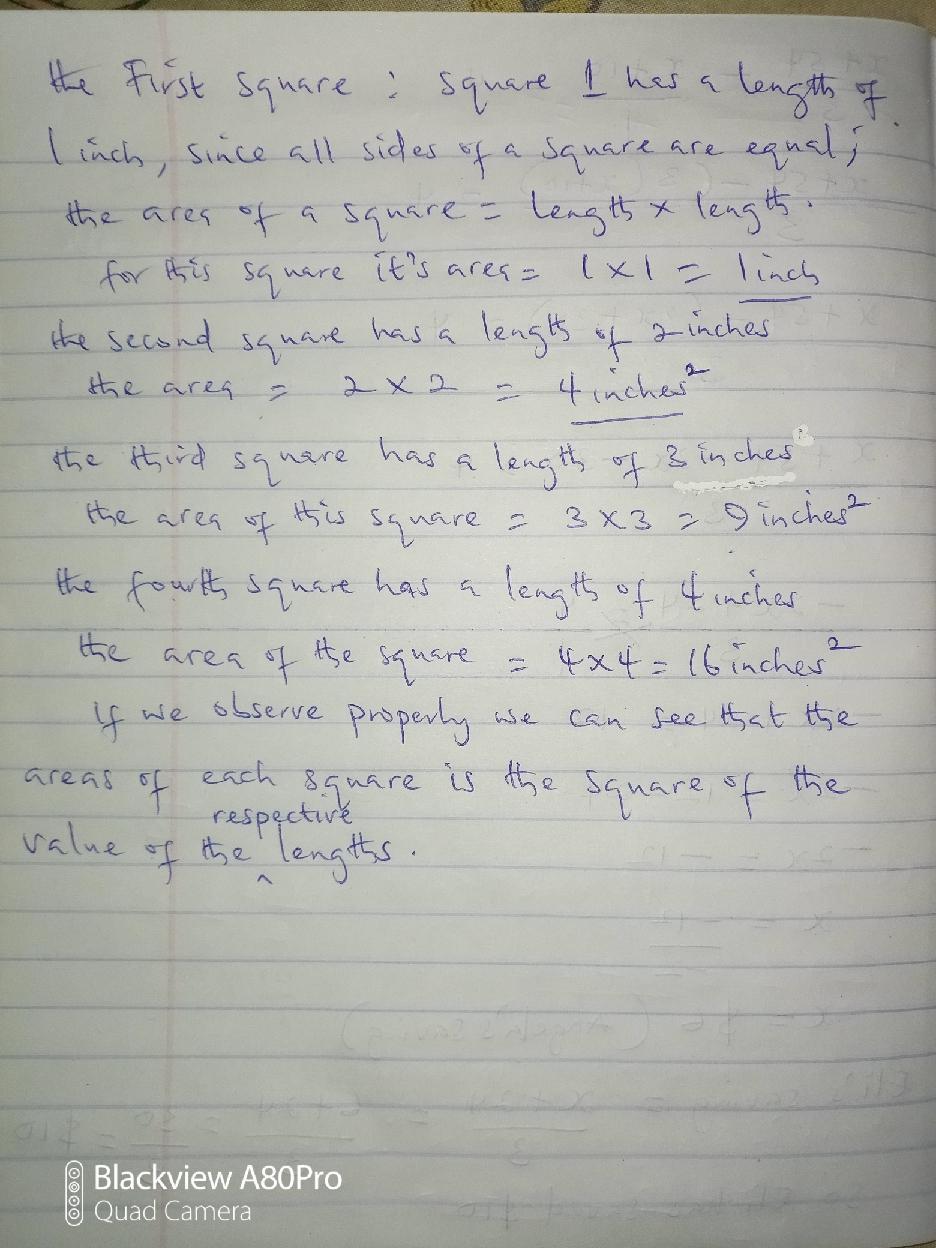 the First square : square 1 has a length of
1 inch, since all sides of a square are equal;
the area of a square = length x length.
for this square it's area = 1 x 1 = 1 inch
the second square has a length of 2 inches
the area = 2 x 2 = 4 inches²
the third square has a length of 3 inches
the area of this square = 3 x 3 = 9 inches²
the fourth square has a length of 4 inches
the area of the square = 4 x 4 = 16 inches²
if we observe properly we can see that the
areas of each square is the square of the
value of the respective lengths.
Blackview A80Pro
Quad Camera